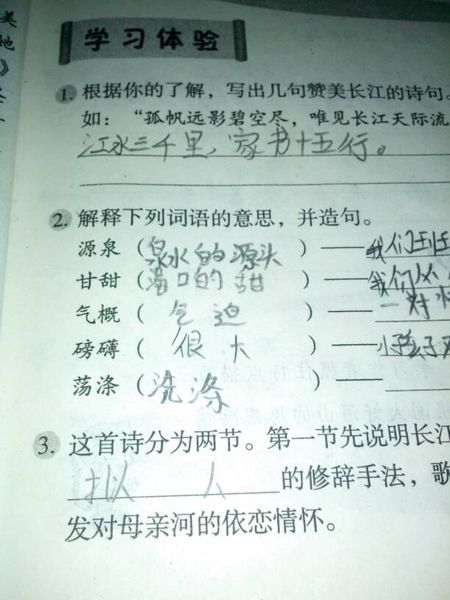 学习体验
1. 根据你的了解，写出几句赞美长江的诗句。
如：“孤帆远影碧空尽，唯见长江天际流
江水三千里，家书十五行。
2. 解释下列词语的意思，并造句。
源泉（泉水的源头）——我们到
甘甜（满口的甜）——我们从
气概（气迫）——一对
磅礴（很大）——小孩子
荡涤（洗涤）——
3. 这首诗分为两节。第一节先说明长江
拟人的修辞手法，歌
发对母亲河的依恋情怀。